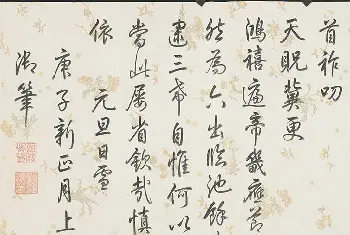 首祚叨
天貺冀更
鴻禧遍帝畿應節
然為六出臨池餘
建三希自惟何以
當此屢省欽哉慎
依 元旦日雪
庚子新正月上
御筆